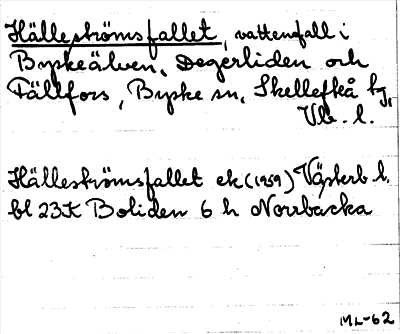 Hälleströmsfallet, vattenfall i
Byskeälven, Degerliden och
Fällfors, Byske sn, Skellefteå tg,
Vb. l.
Hälleströmsfallet ek (1959) Västerb l.
bl 23K Boliden 6 h Norrbacka
ML-62